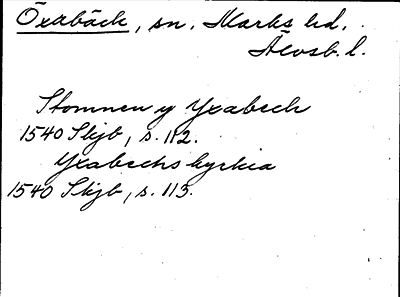 Öxabäck, sn. Marks hd.
Älvsb. l.
Stomnen y Yxabech
1540 Skjb, s. 112.
Yxabechs kyrkia
1540 Skjb, s. 113.